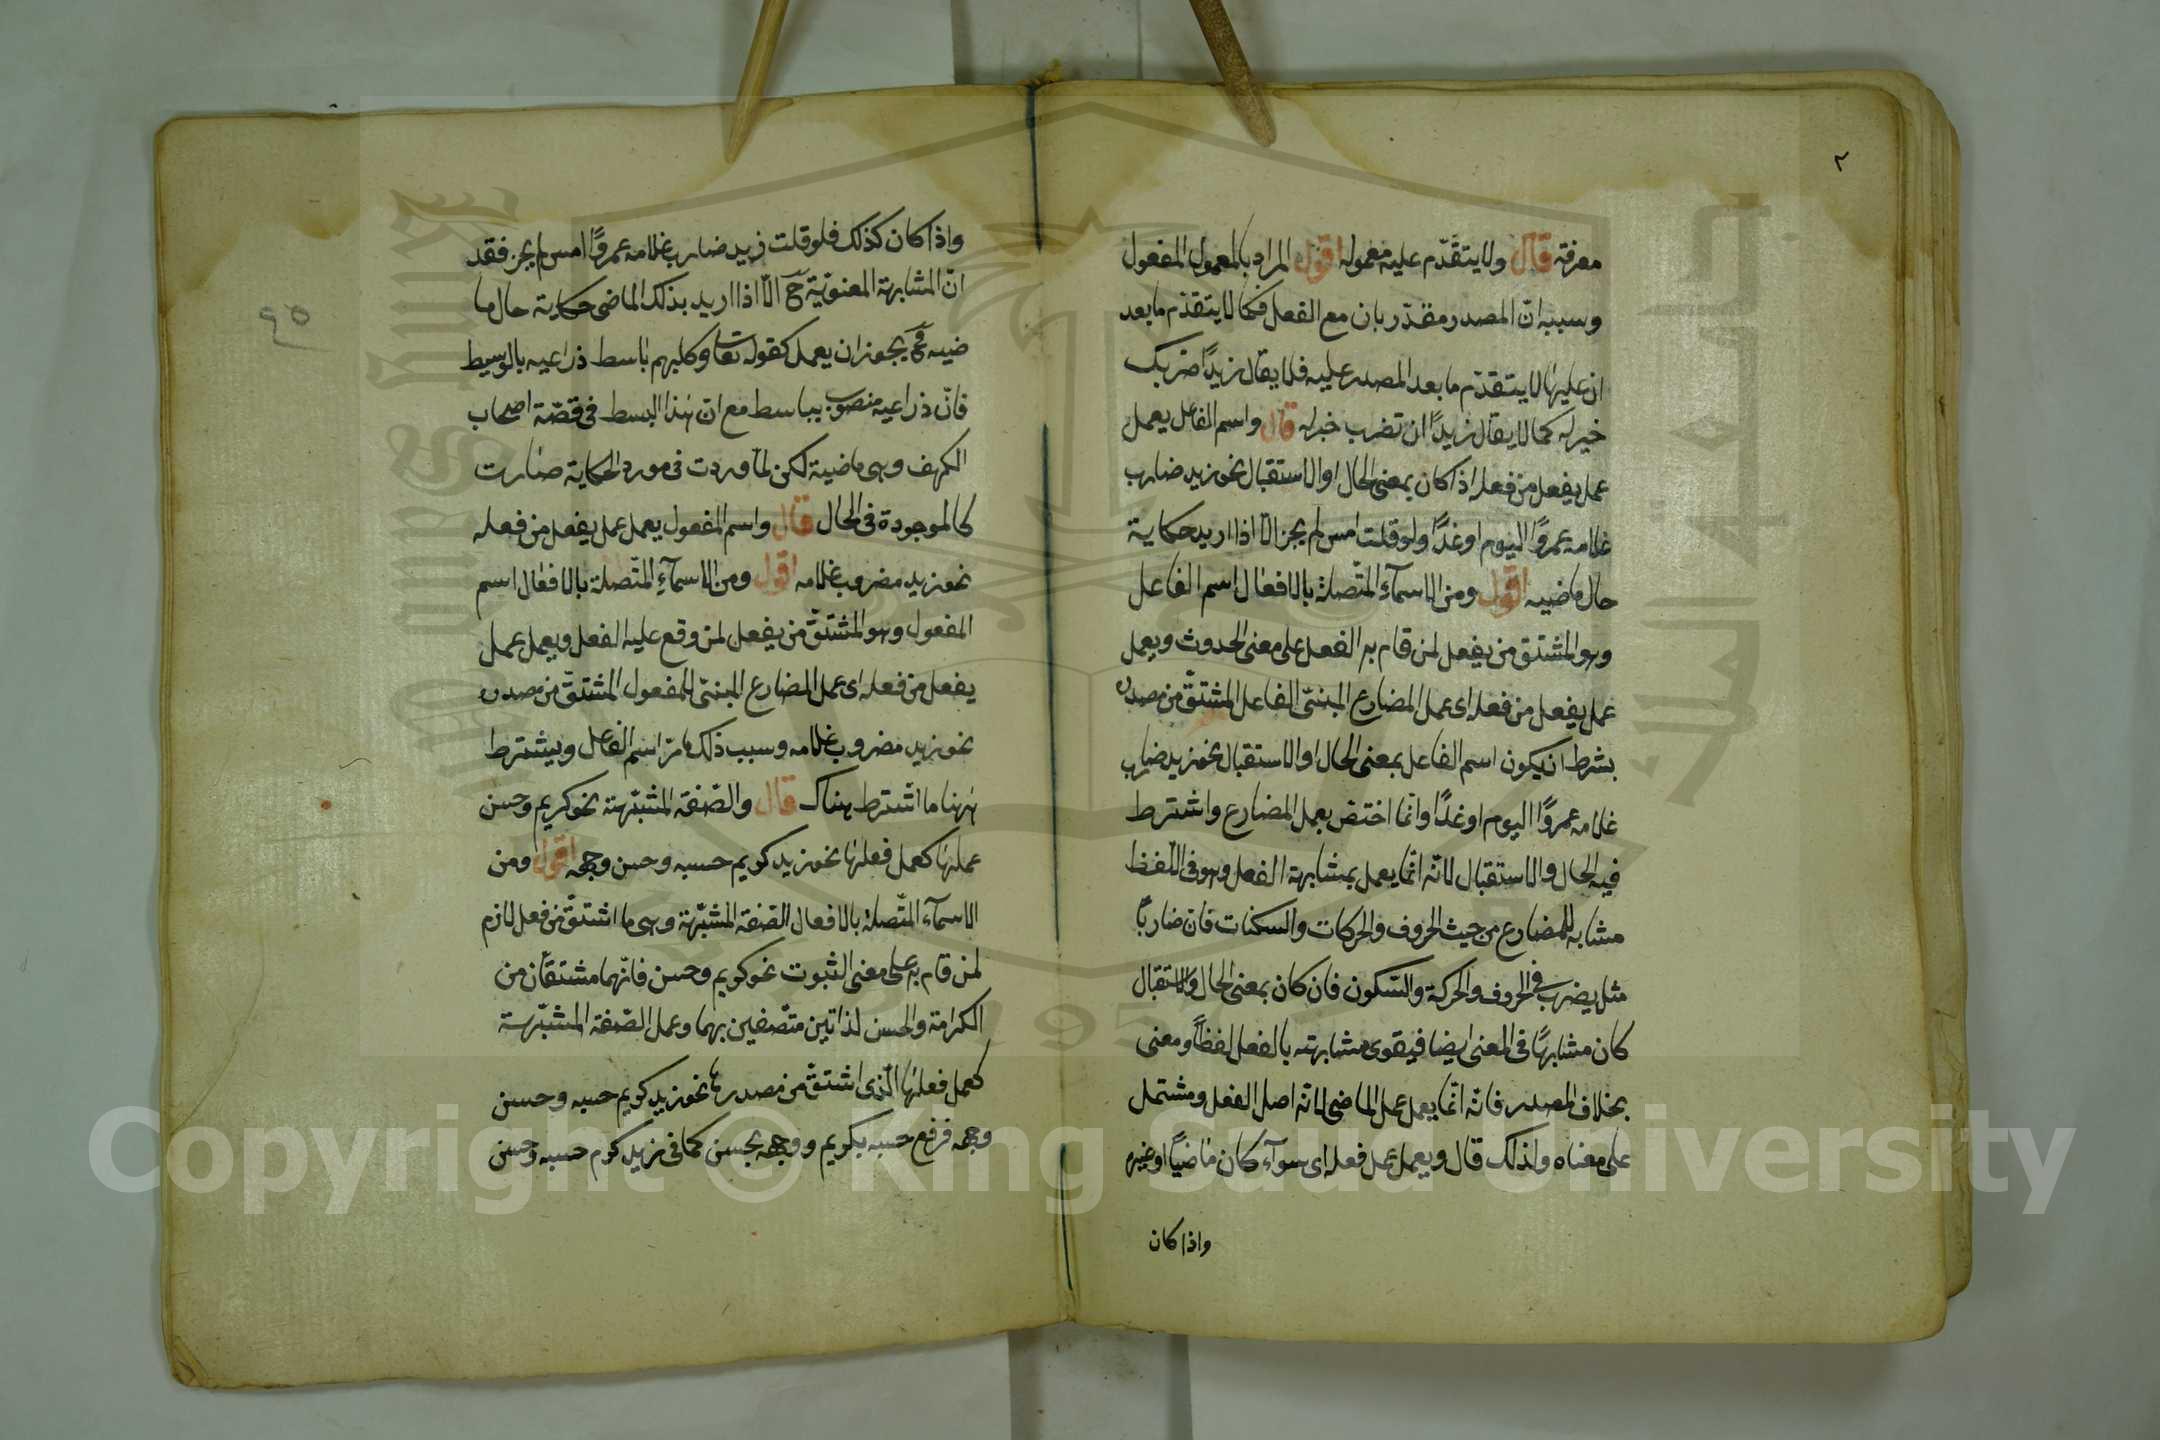 ٢
معرفة قال ولا يتقدّم عليه معموله اقول المراد بالمعمول المفعول
وسببه انّ المصدر مقدّر بان مع الفعل فكما لا يتقدّم ما بعد
ان عليها لا يتقدّم ما بعد المصدر عليه فلا يقال زيدًا ضربك
خير له كما لا يقال زيدًا ان تضرب خير له قال واسم الفاعل يعمل
عمل يفعل من فعله اذا كان بمعنى الحال او الاستقبال نحو زيد ضارب
غلامه عمروًا اليوم او غدًا ولو قلت امس لم يجز الاّ اذا اريد حكاية
حال ماضيه اقول ومن الاسمآء المتّصلة بالافعال اسم الفاعل
وهو المشتق من يفعل لمن قام به الفعل على معنى الحدوث ويعمل
عمل يفعل من فعله اى عمل المضارع المبنىّ للفاعل المشتقّ من مصدره
بشرط ان يكون اسم الفاعل بمعنى الحال او الاستقبال نحو زيد ضارب
غلامه عمروًا اليوم او غدًا وانّما اختصّ بعمل المضارع واشترط
فيه الحال والاستقبال لانّه انّما يعمل بمشابهة الفعل وهو فى اللّفظ
مشابه للمضارع من حيث الحروف والحركات والسكنات فان ضاربًا
مثل يضرب فى الحروف والحركة والسّكون فان كان بمعنى الحال والاستقبال
كان مشابهًا فى المعنى ايضا فيقوى مشابهته بالفعل لفظًا ومعنى
بخلاف المصدر فانّه انّما يعمل عمل الماضى لانّه اصل الفعل ومشتمل
على معناه ولذلك قال ويعمل عمل فعله اى سوآء كان ماضيًا او غيره
واذا كان
واذا كان كذلك فلو قلت زيد ضارب غلامه عمروًا امس لم يجز فقد
انّ المشابهة المعنويّة ح الاّ اذا اريد بذلك الماضى حكاية حال ما
ضيه فح يجوز ان يعمل كقوله تعا وكلبهم باسط ذراعيه بالوسيط
فانّ ذراعيه منصوب بباسط مع انّ هذا البسط فى قصّة اصحاب
الكهف وهى ماضية لكن لمّا وردت فى مورد الحكاية صارت
كالموجودة فى الحال قال واسم المفعول يعمل عمل يفعل من فعله
نحو زيد مضروب غلامه اقول ومن الاسمآء المتّصلة بالافعال اسم
المفعول وهو المشتقّ من يفعل لمن وقع عليه الفعل ويعمل عمل
يفعل من فعله اى عمل المضارع المبنىّ للمفعول المشتقّ من مصدره
نحو زيد مضروب غلامه وسبب ذلك ما مرّ اسم الفاعل ويشترط
ههنا ما اشترط هناك قال والصّفة المشبّهة نحو كريم وحسن
عملها كعمل فعلها نحو زيد كريم حسبه وحسن وجهه اقول ومن
الاسمآء المتّصلة بالافعال الصّفة المشبّهة وهى ما اشتقّ من فعل لازم
لمن قام به على معنى الثبوت نحو كريم وحسن فانّهما مشتقّان من
الكرامة والحسن لذاتين متّصفين بهما وعمل الصّفة المشبّهة
كعمل فعلها الّذى اشتقّ من مصدرها نحو زيد كريم حسبه وحسن
وجهه فرفع حسبه بكريم ووجهه بحسن كما فى زيد كرم حسبه وحسن
٩٥
Copyright © King Saud University
1957